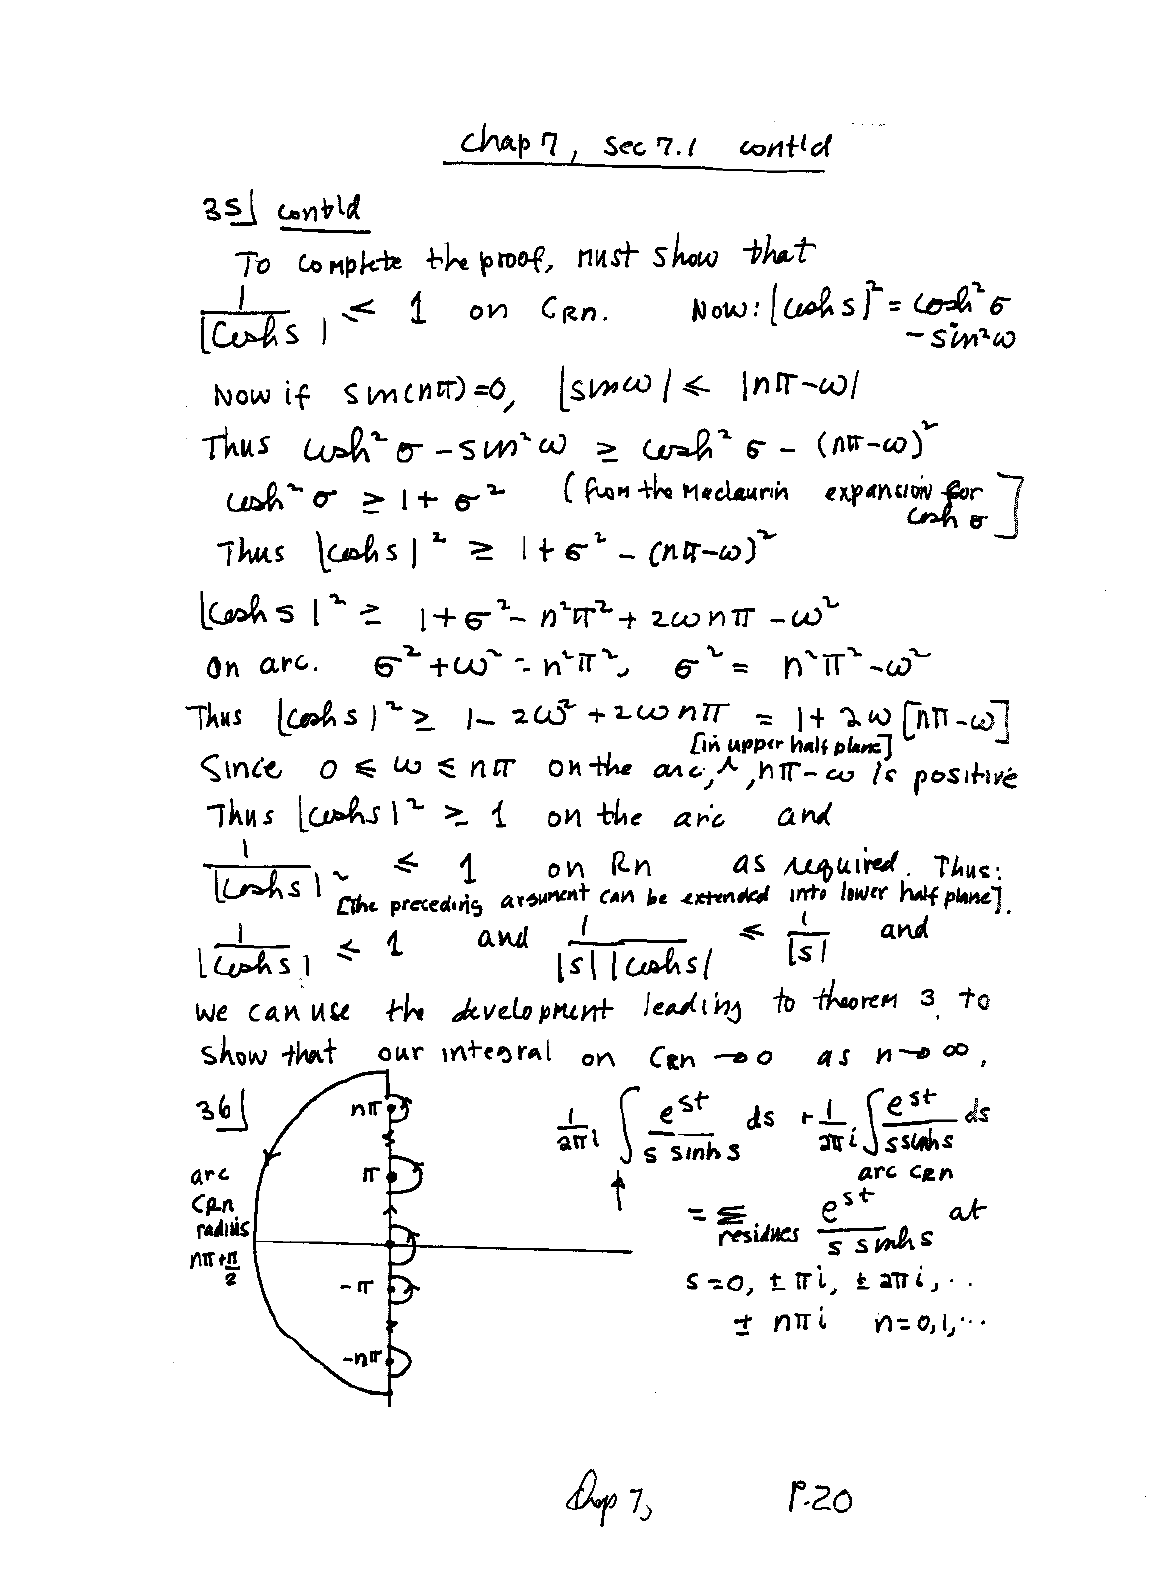 chap 7, sec 7.1 cont'd
35| cont'd
To complete the proof, must show that
1/|cosh s| ≤ 1 on CRn. Now: |cosh s|² = cosh² σ
- sin² ω
Now if sin(nπ)=0, |sin ω| ≤ |nπ-ω|
Thus cosh² σ - sin² ω ≥ cosh² σ - (nπ-ω)²
cosh² σ ≥ 1+σ² (from the Maclaurin expansion for
cosh σ ]
Thus |cosh s|² ≥ 1+σ² - (nπ-ω)²
|cosh s|² ≥ 1+σ² - n²π² + 2ωnπ - ω²
On arc. σ²+ω² = n²π², σ² = n²π²-ω²
Thus |cosh s|² ≥ 1-2ω²+2ωnπ = 1+2ω[nπ-ω]
[in upper half plane]
Since 0 ≤ ω ≤ nπ on the arc,^, nπ-ω is positive
Thus |cosh s|² ≥ 1 on the arc and
1/|cosh s|² ≤ 1 on Rn as required. Thus:
[the preceding argument can be extended into lower half plane].
1/|cosh s| ≤ 1 and 1/|s||cosh s| ≤ 1/|s| and
We can use the development leading to theorem 3, to
show that our integral on CRn → 0 as n→∞.
36|
nπ
1/2πi ∫ e^st/s sinh s ds + 1/2πi ∫ e^st/s sinh s ds
arc CRn
π
arc
CRn
radius
nπ+π/2
= Σ residues e^st/s sinh s at
-π
s=0, ± πi, ± 2πi, ..
± nπi n=0,1,...
-nπ
Chap 7, P.20